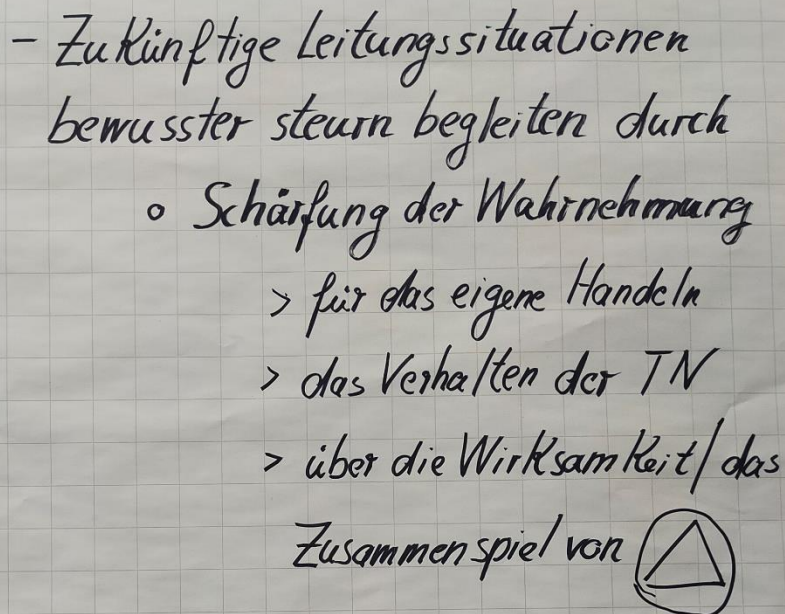 - Zukünftige Leitungssituationen
bewusster steurn begleiten durch
o Schärfung der Wahrnehmung
> für das eigene Handeln
> das Verhalten der TN
> über die Wirksamkeit/das
Zusammenspiel von